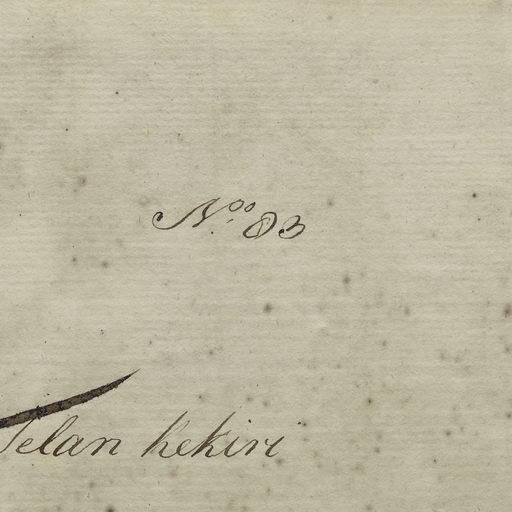 Noo 83
Telan kekiri